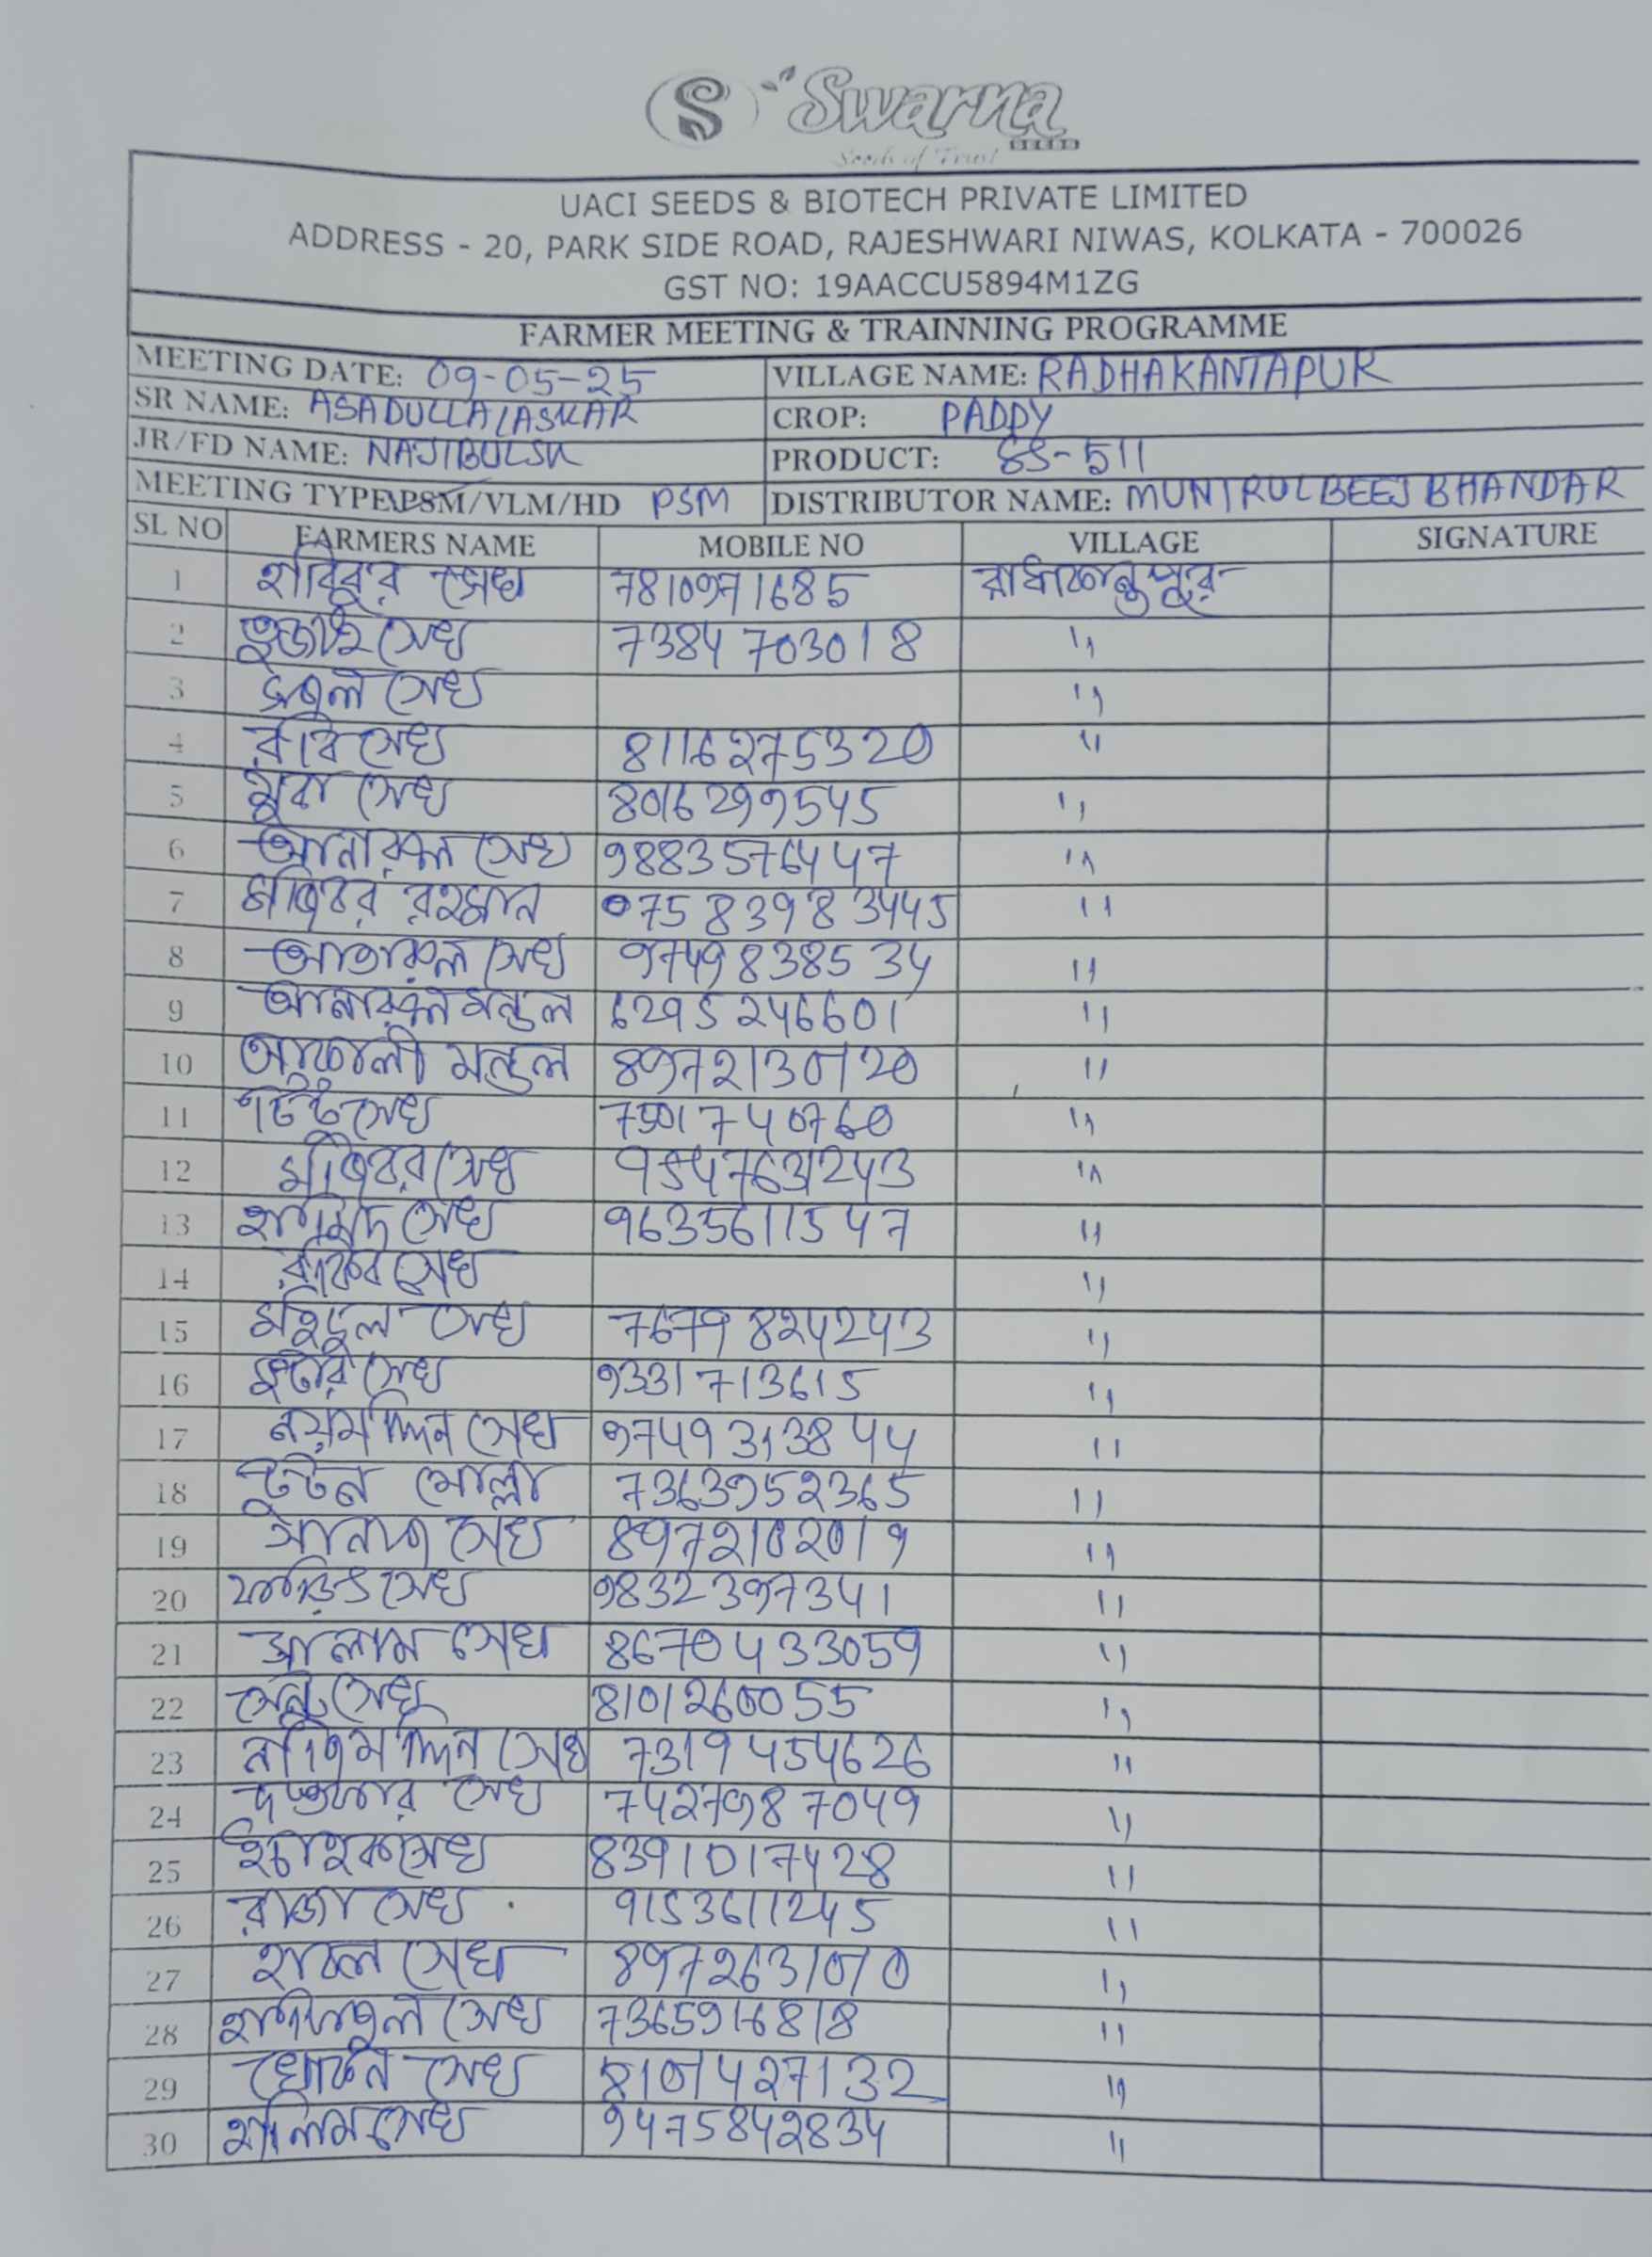 S Swarna
SEEDS
Seeds of Trust
UACI SEEDS & BIOTECH PRIVATE LIMITED
ADDRESS - 20, PARK SIDE ROAD, RAJESHWARI NIWAS, KOLKATA - 700026
GST NO: 19AACCU5894M1ZG
FARMER MEETING & TRAINNING PROGRAMME
MEETING DATE: 09-05-25 VILLAGE NAME: RADHAKANTAPUR
SR NAME: ASADULLA LASKAR CROP: PADDY
JR/FD NAME: NAJIBUL SK PRODUCT: SS-511
MEETING TYPE\PSM/VLM/HD PSM DISTRIBUTOR NAME: MUNIRUL BEEJ BHANDAR
SL NO FARMERS NAME MOBILE NO VILLAGE SIGNATURE
1 হাবিবুর সেখ 7810971685 রাধাকান্তপুর
2 সেখ 7384703018 "
3 সেখ "
4 রবি সেখ 8116275320 "
5 সেখ 8016299545 "
6 আনারুল সেখ 9883576447 "
7 মজিবর রহমান 075 83983445 "
8 আতারুল সেখ 9749838534 "
9 আনারুল মন্ডল 6295246601 "
10 মন্ডল 8972130120 "
11 সেখ 7501740760 "
12 মজিবর সেখ 9547631243 "
13 হামিদ সেখ 9635611547 "
14 রাকিব সেখ "
15 মহিদুল সেখ 7679824243 "
16 সেখ 9331713615 "
17 নয়মদ্দিন সেখ 9749313844 "
18 টুটন মোল্লা 7363952365 "
19 সেখ 8972102019 "
20 ফড়িং সেখ 9832397341 "
21 আলাম সেখ 8670433059 "
22 সেখ 8101260055 "
23 নাজিমদ্দিন সেখ 7319454626 "
24 সেখ 7427987049 "
25 ইসাহক সেখ 8391017428 "
26 রাজা সেখ 9153611245 "
27 সেখ 8972631070 "
28 হাফিজুল সেখ 7365916818 "
29 খোকন সেখ 8101427132 "
30 হালিম সেখ 9475842834 "